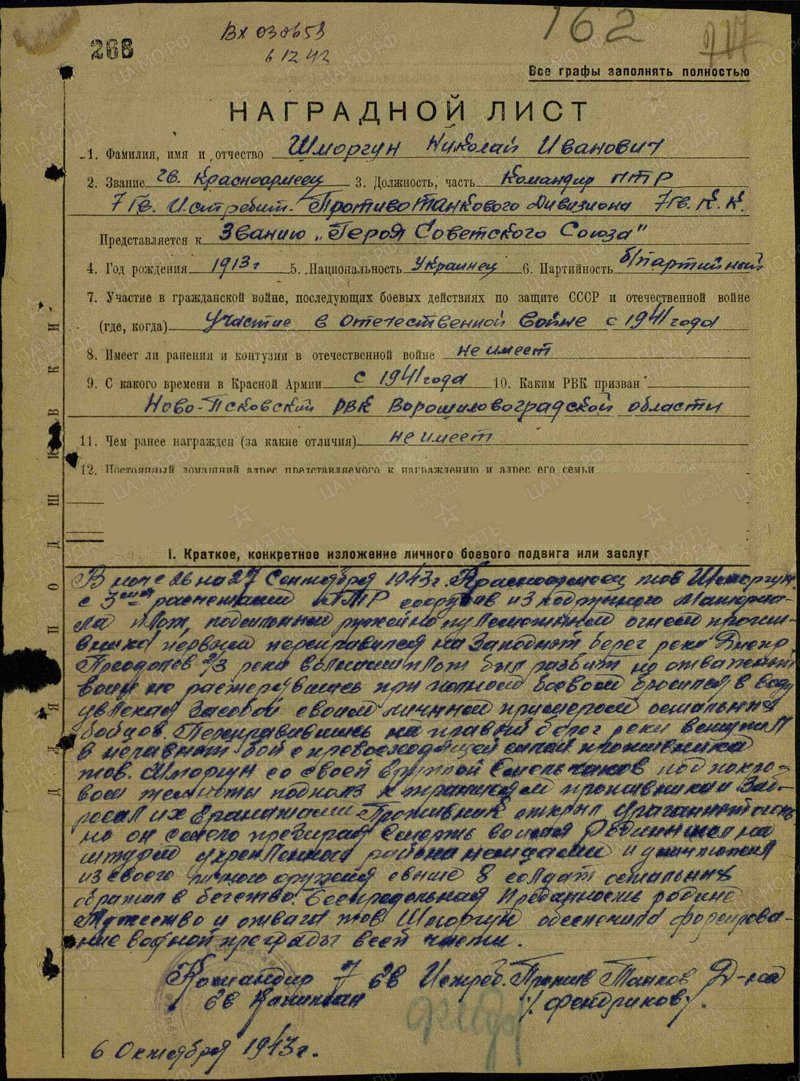 268
Вх 030658
6 12 43
162
Все графы заполнять полностью
НАГРАДНОЙ ЛИСТ
1. Фамилия, имя и отчество Шморгун Николай Иванович
2. Звание Гв. Красноармеец 3. Должность, часть Командир ПТР
7 Гв. Истребит. Противотанкового Дивизиона 7 Гв. К. К.
Представляется к Званию „Героя Советского Союза"
4. Год рождения 1913 г 5. Национальность Украинец 6. Партийность б/партийный
7. Участие в гражданской войне, последующих боевых действиях по защите СССР и отечественной войне
(где, когда) участие в Отечественной войне с 1941 года
8. Имеет ли ранения и контузии в отечественной войне не имеет
9. С какого времени в Красной Армии с 1941 года 10. Каким РВК призван
Ново-Псковский РВК Ворошиловградской области
11. Чем ранее награжден (за какие отличия) не имеет
12. Постоянный домашний адрес представляемого к награждению и адрес его семьи
ДЛЯ ПОДШИВКИ
I. Краткое, конкретное изложение личного боевого подвига или заслуг
В ночь с 26 на 27 Сентября 1943 г. Красноармеец тов Шморгун
с 3 расчетами ПТР соорудив из подручного Материа-
ла плот, под сильным ружейно пулеметным огнем против-
ника первый переправился на Западный берег реки Днепр
Преодолев 2/3 реки волнами плот был разбит но отважный
воин не растерявшись при полном боевом бросился в воду
увлекая За собой своим личным примером остальных
бойцов. Переправившись на правый берег реки вступил
в неравный бой с превосходящей силой противника
тов. Шморгун со своей группой Смельчаков под покро-
вом темноты подполз к траншеям противника и За-
бросал их Гранатами Противник открыл ураганный огонь
но он презирая Смерть воин Родины на
штурм укрепленного района и уничтожил
из своего личного оружия свыше 8 солдат остальных
обратил в бегство. Беспредельная Преданность родине
Мужество и отвага тов Шморгун обеспечила форсирова-
ние водной преграды всей части.
Командир 7 Гв Истреб. Против Танков Д-на
Гв Капитан /Фендриков/.
6 Октября 1943 г.